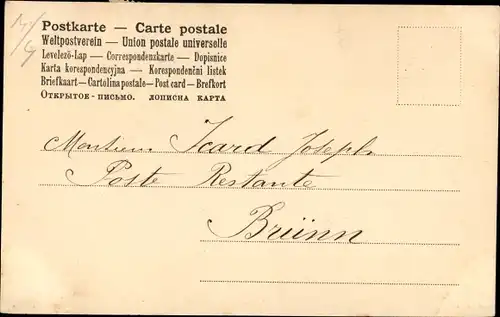 Postkarte — Carte postale
Weltpostverein — Union postale universelle
Levelezö-Lap — Correspondenzkarte — Dopisnice
Karta korespondencyjna — Korespondenčni listek
Briefkaart — Cartolina postale — Post card — Brefkort
Открытое - письмо. лописна карта
Monsieur Icard Joseph
Poste Restante
Brünn